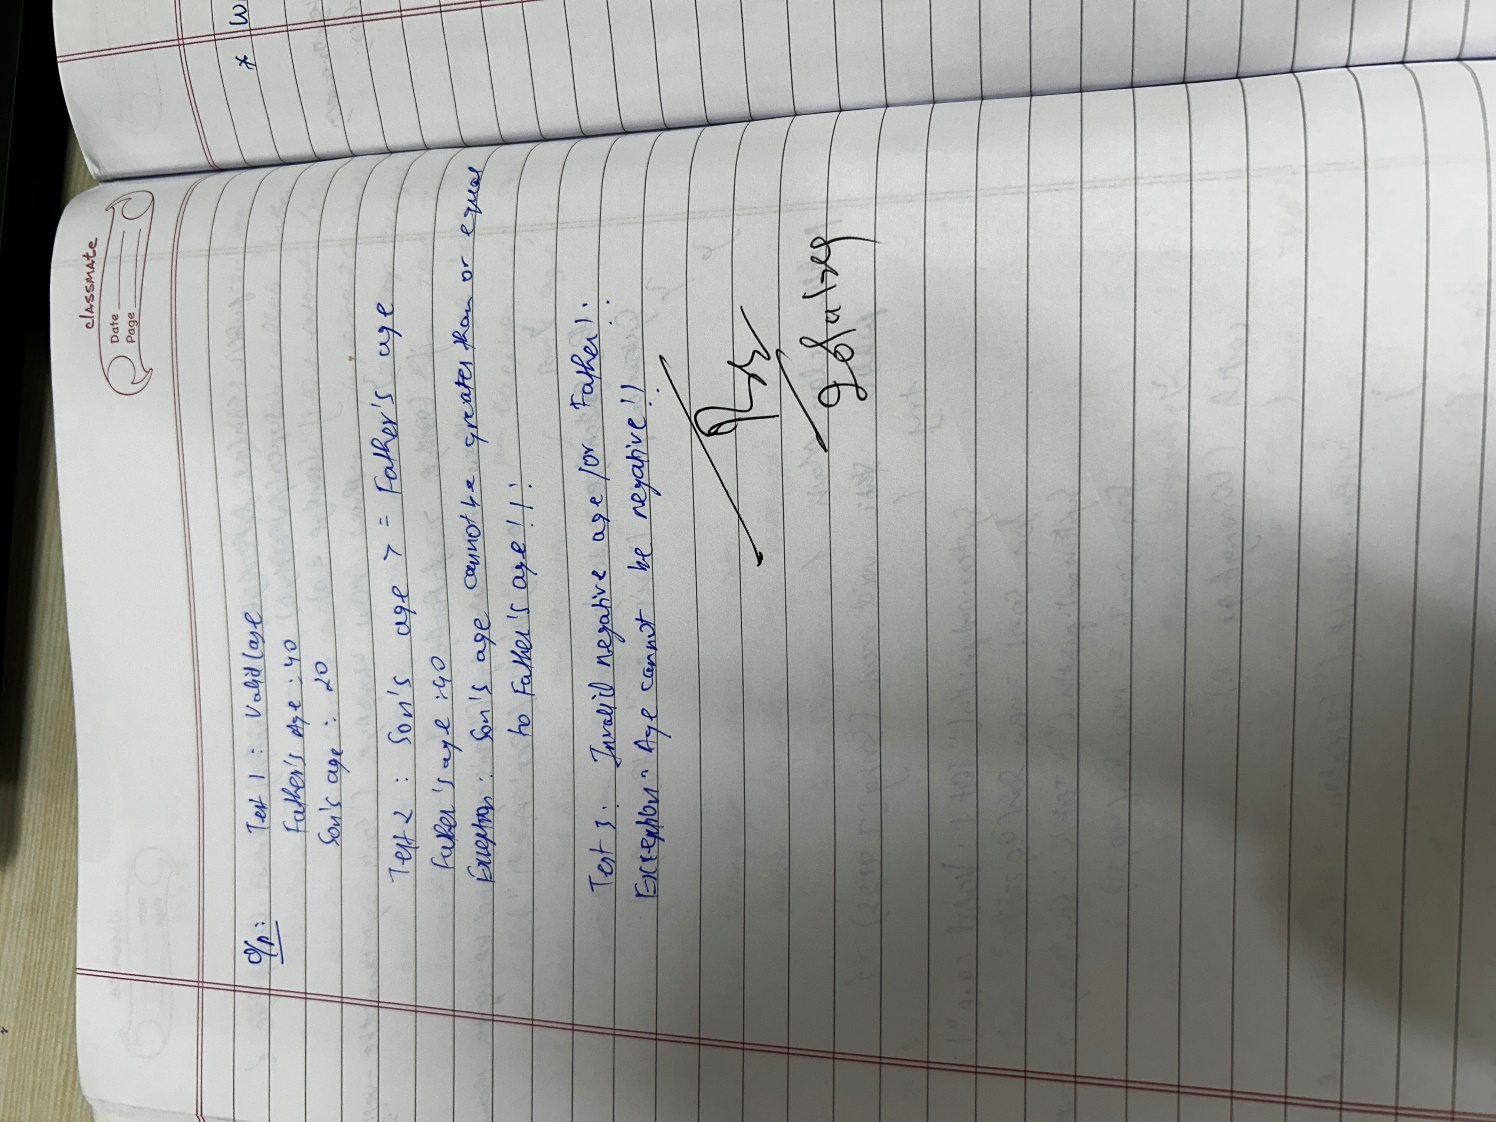 classmate
Date
Page
O/P: Test 1 : Valid Case
Father's Age : 40
Son's age : 20
Test 2 : Son's age > = Father's age
Father's age : 40
Exception : Son's age cannot be greater than or equal
to Father's age!!!
Test 3: Invalid negative age for Father!!
Exception: Age cannot be negative!!
* W